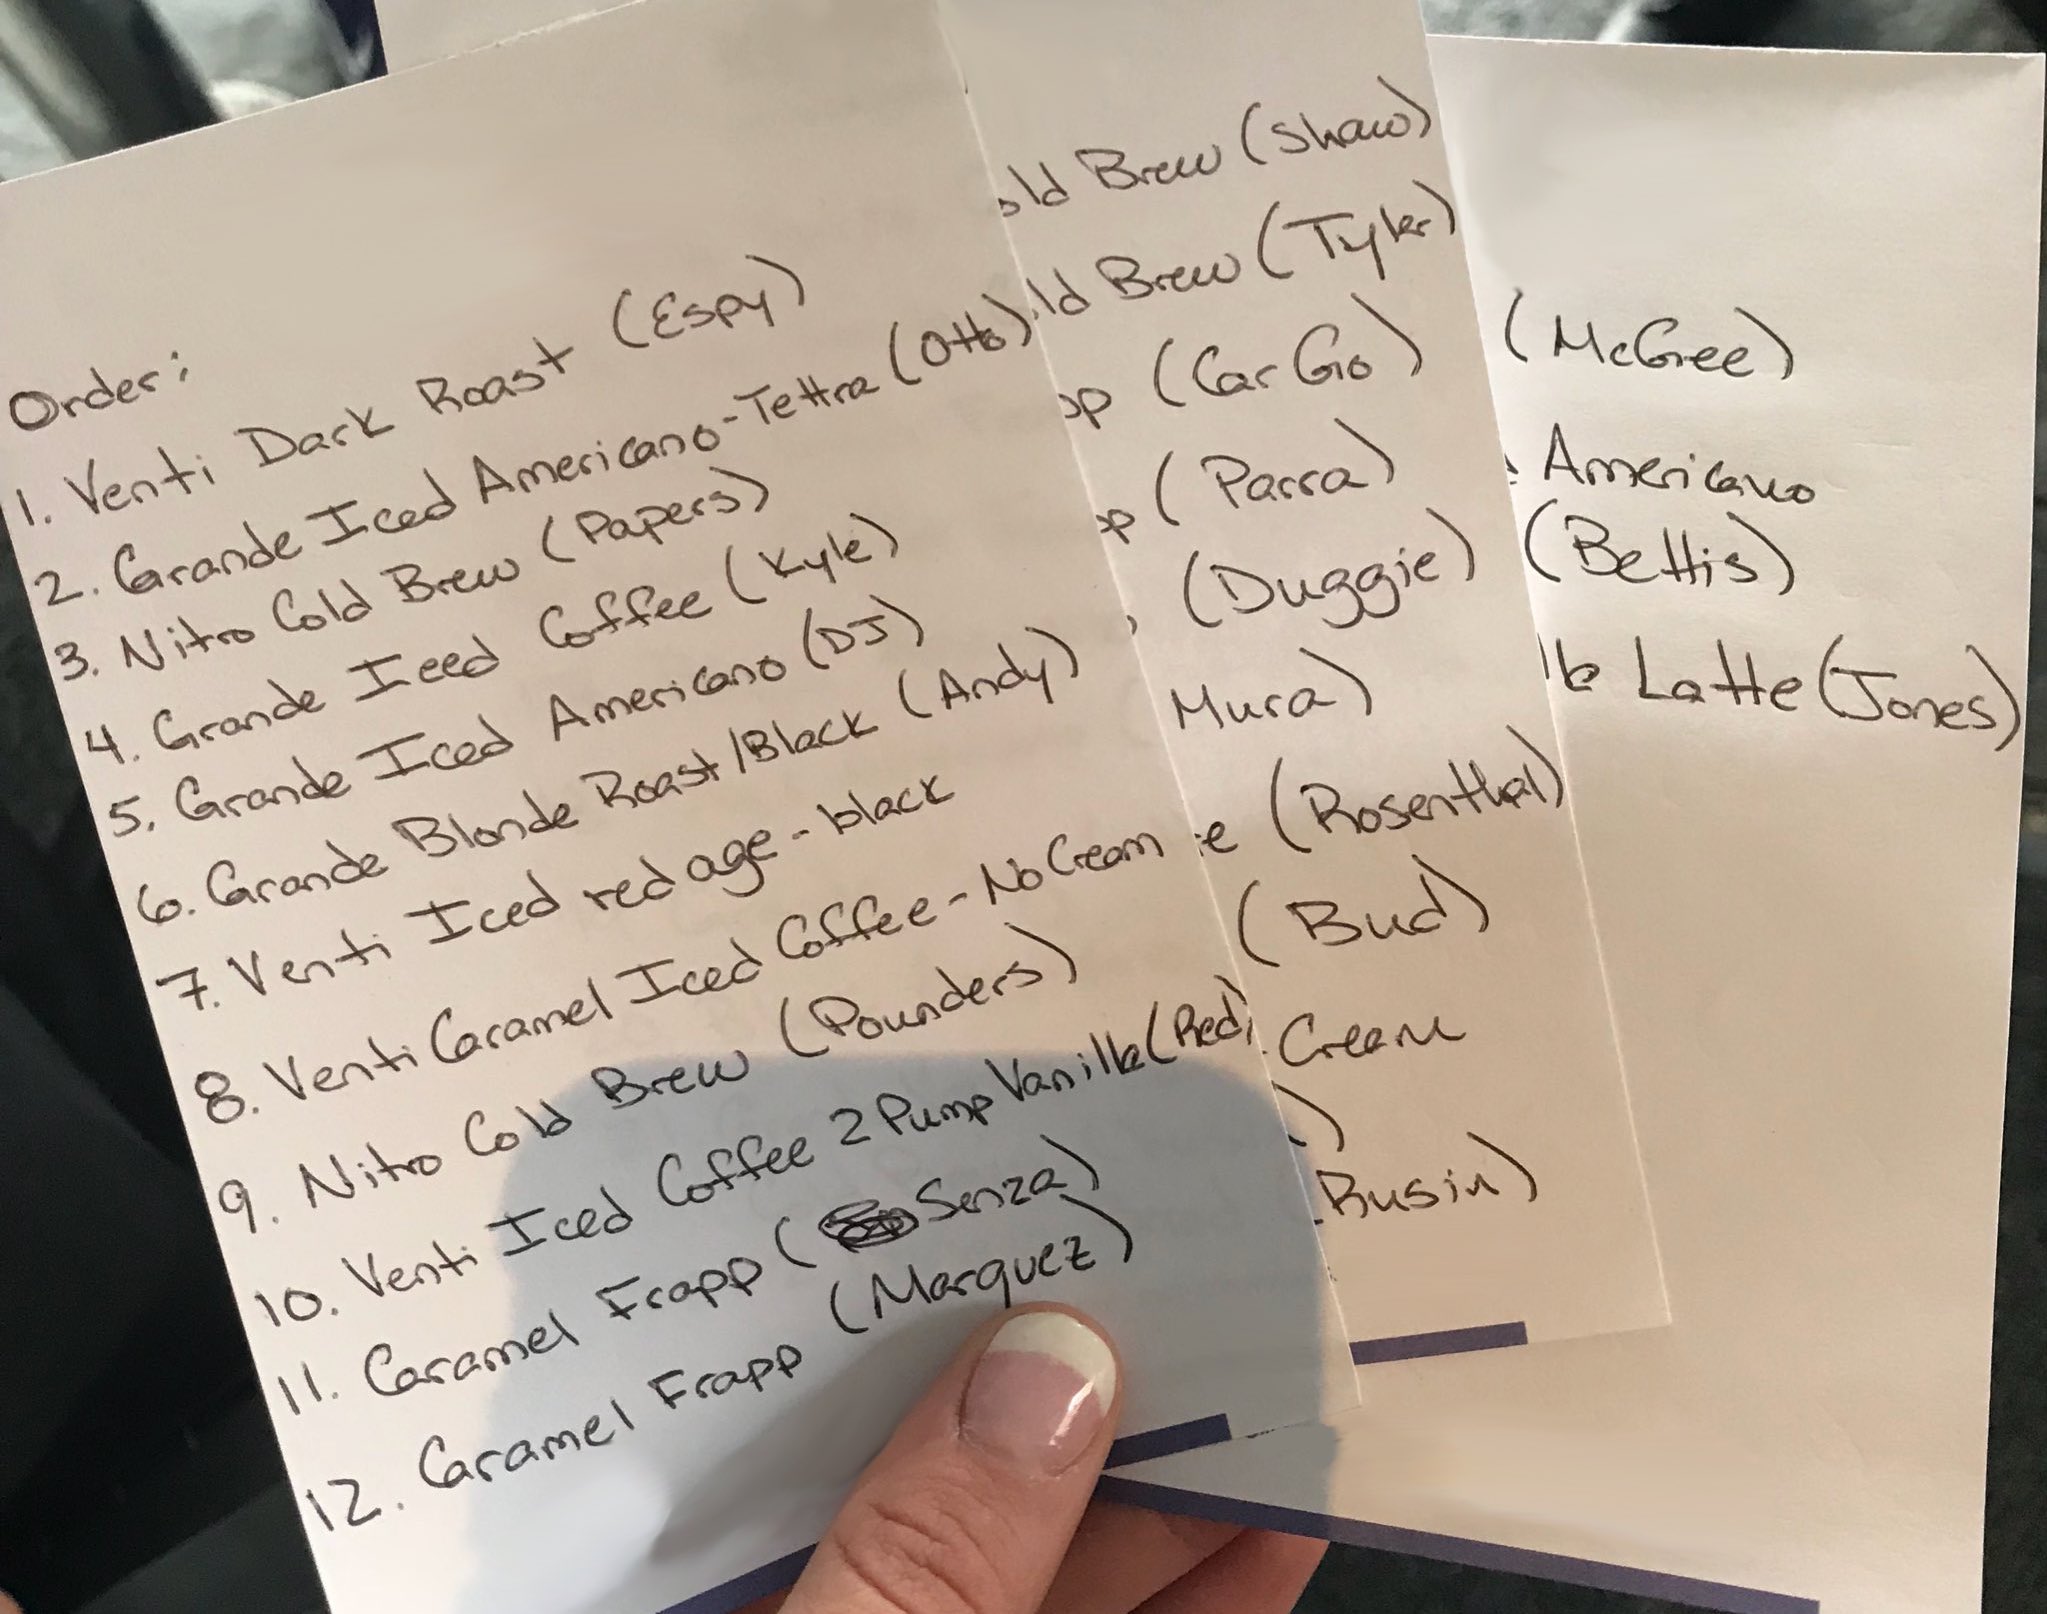 Order:
1. Venti Dark Roast (Espy)
2. Grande Iced Americano-Tettra (Otto)
3. Nitro Cold Brew (Papers)
4. Grande Iced Coffee (Kyle)
5. Grande Iced Americano (DJ)
6. Grande Blonde Roast/Black (Andy)
7. Venti Iced red age - black
8. Venti Caramel Iced Coffee - No Cream
9. Nitro Cold Brew (Pounders)
10. Venti Iced Coffee 2 Pump Vanilla (Red)
11. Caramel Frapp (Senza)
12. Caramel Frapp (Marquez)
old Brew (Shaw)
ld Brew (Tyler)
pp (CarGo)
pp (Parra)
(Duggie)
Mura)
e (Rosenthal)
(Bud)
Cream
)
Rusin)
(McGee)
Americano
(Bettis)
Latte (Jones)